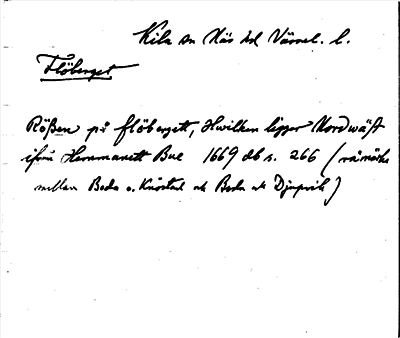 Kila sn Näs hd Värml. l.
Flöberget
Rößen på flöbergett, Hwilken ligger Nordwäst
ifrån Herremanett Bue 1669 db s. 266 (råmärke
mellan Boda o. Knöstad och Boda och Djupvik)